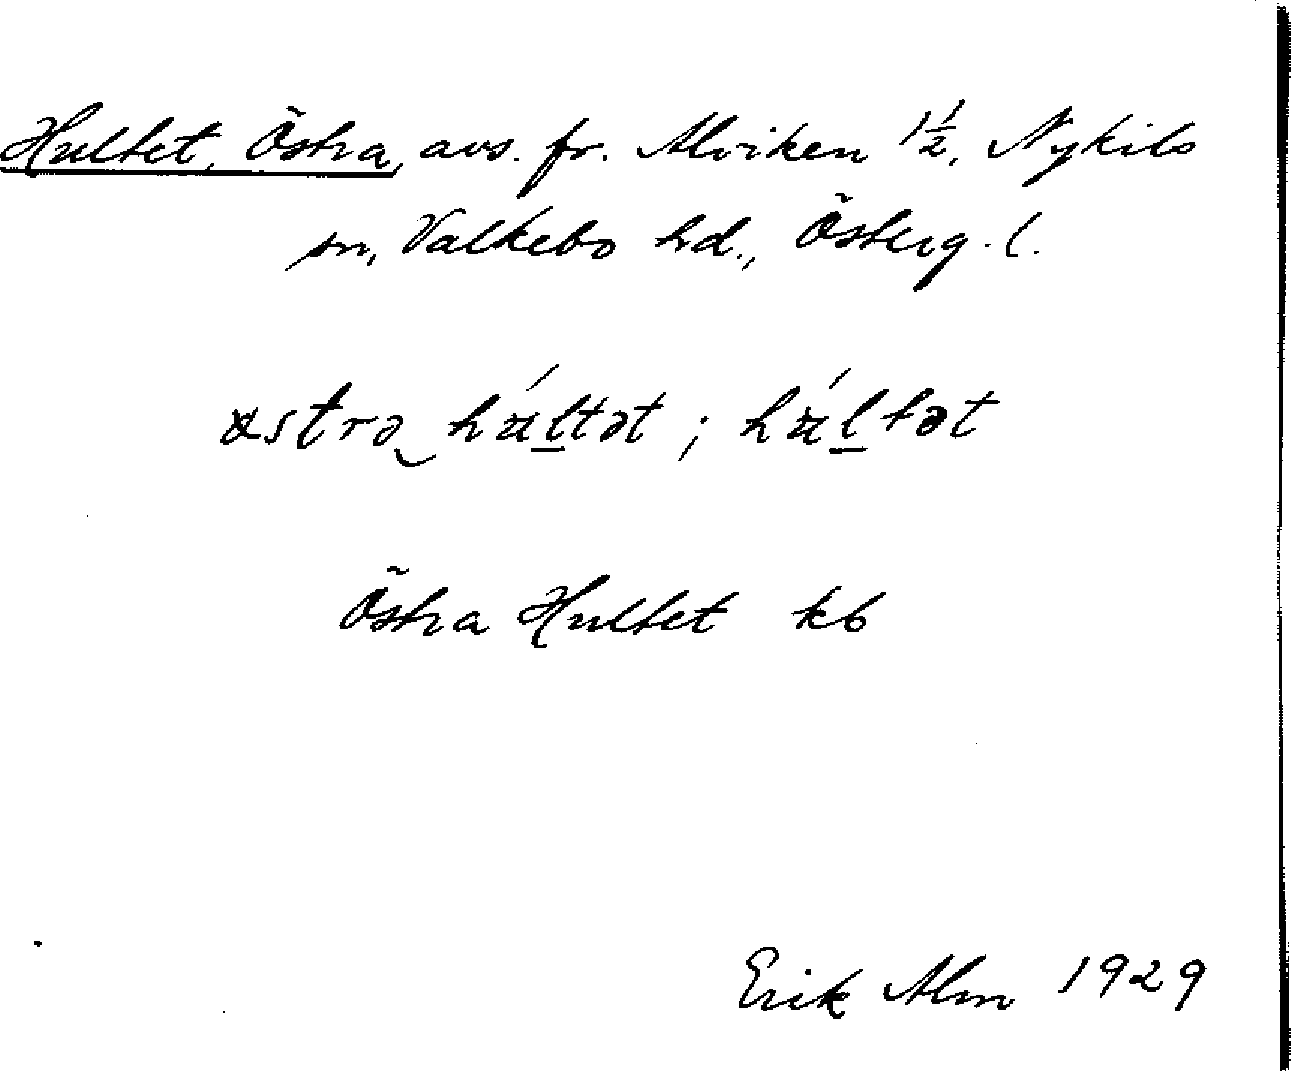 Hultet, Östra, avs. fr. Alviken 1 1/2, Nykils
sn, Valkebo hd., Österg. l.
östrə húltət ; húltət
Östra Hultet kb
Erik Alm 1929